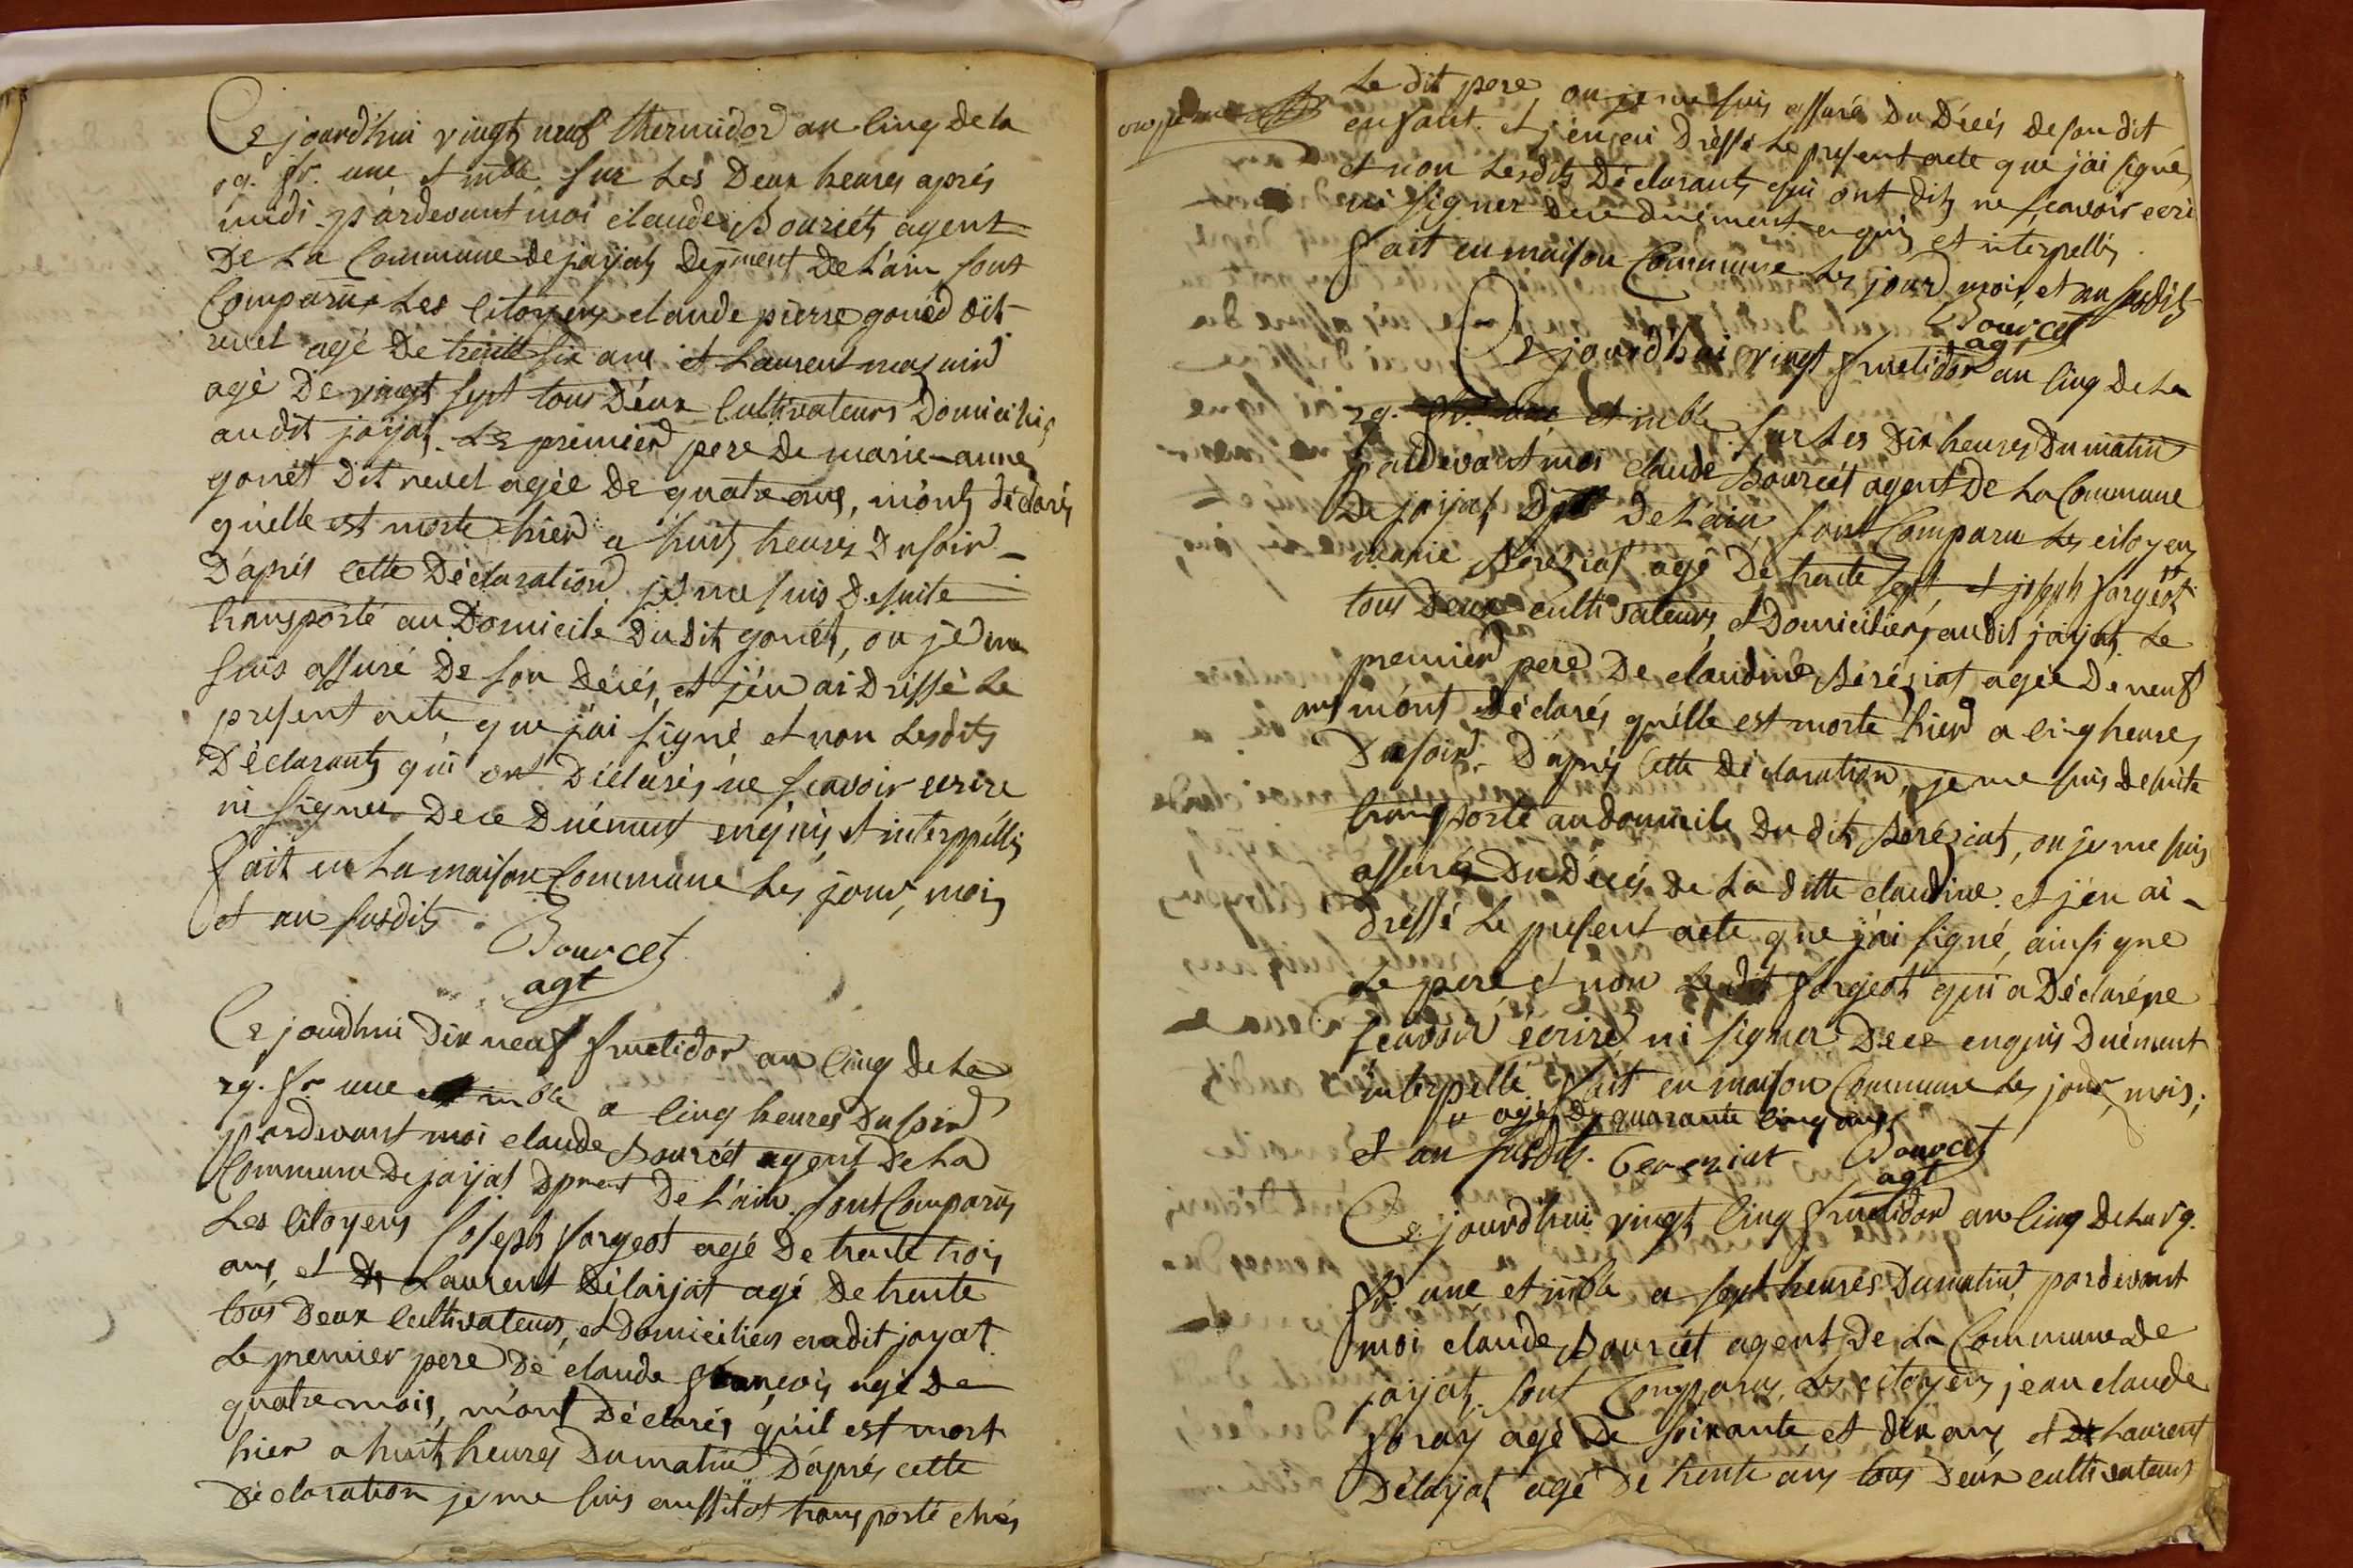 Ce jourd'hui vingt neuf thermidor an cinq de la
rq. fr. une et indble sur les deux heures aprés
midi pardevant moi claude Bourcét agent
De la Commune de jayat, depment De L'ain sont
Comparûs Les Citoyens claude pierre gonéd dit
revel agé De trente six ans et Laurent
agé De vingt sept tous Déux Cultivateurs Domiciliés
audit jayat. Le premier pere De marie-anne
gonét Dit revel agée De quatre ans, m'ont déclarés
qu'elle est morte hier a huit heures Du soir -
D'aprés cette Déclaration je me suis De suite
transporté au Domicile Du dit gonét, ou je me
suis assuré De son décés, et j'en ai Dréssé Le
present acte que j'ai signé et non Lesdits
Déclarants qui ont Déclarés ne scavoir ecrire
ni signer De ce Duément enquis et interppéllés
fait en La maison Commune Les jour, mois
et an susdits
Bourcet
agt
Ce joudhui Dix neuf fructidor an cinq De La
rq. fr. une et indble a cinq heures Du soir
pardevant moi claude Bourcét agent De La
Commune De jayat dpment De L'ain. sont Comparus
Les Citoyens Joseph forgeot agé De trente trois
ans, et De Laurent Délayat agé De trente
tous Deux Cultivateurs, et Domiciliés audit jayat.
Le premier pere De claude françois agé De
quatre mois, m'ont Déclarés qu'il est mort
hier a huit heures Du matin D'aprés cette
Déclaration je me suis aussitot transporté chés
onzième
Le dit pere, ou je me suis assuré Du Décés De son dit
enfant. et j'en ai Dréssé Le present acte que j'ai signé,
et non Lesdits Déclarants qui ont dits ne scavoir ecri
ni signer De ce duément enquis et interpellés.
fait en maison Commune Les jour mois et an susdits
Bourcet
agt
Ce jourd'hui vingt fructidor an cinq De La
rq. fr. une et indble. sur Les Dix heures Du matin
pardevant moi claude Bourcét agent De La Commune
De jayat, Dpt De L'ain, sont Comparu Les citoyens
marie Béréziat agé De trente sept, et joseph forgeot
tous Deux cultivateurs, et Domiciliers audit jayat. Le
premier pere De claudine Béréziat agée De neuf
ans m'ont Déclarés qu'elle est morte hier a cinq heures
Du soir. D'aprés Cette Déclaration, je me suis De suite
transporté au domicile Du dit Béréziat, ou je me suis
assurés Du Décés De La ditte claudine. et j'en ai -
Dréssé Le present acte que j'ai signé, ainsi que
Le pere et non Le dit forgeot qui a Déclaré ne
scavoir écrire ni signer De ce enquis Duément
interpellé fait en maison Commune Les jour, mois,
agé De quarante cinq ans
et an susdits. Bereziat Bourcet
agt
Ce jourd'hui vingt cinq fructidor an cinq De La rq.
fr. une et indble a sept heures Du matin, pardevant
moi claude Bourcét agent De La Commune De
jayat, sont Comparus Les citoyens jean claude
foray agé De soixante et dix ans et De Laurent
Délayat agé De trente ans tous Deux cultivateurs